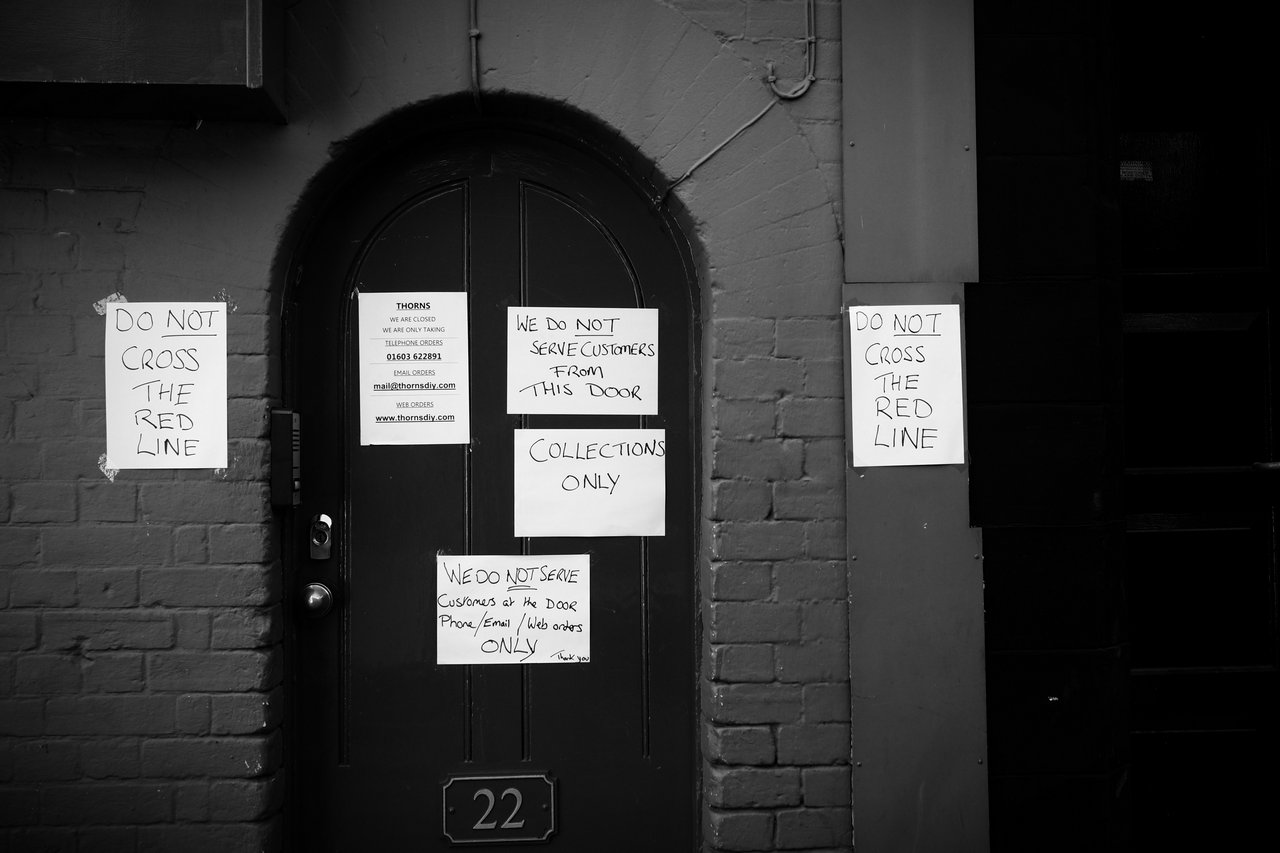 DO NOT
CROSS
THE
RED
LINE
THORNS
WE ARE CLOSED
WE ARE ONLY TAKING
TELEPHONE ORDERS
01603 622891
EMAIL ORDERS
mail@thornsdiy.com
WEB ORDERS
www.thornsdiy.com
WE DO NOT
SERVE CUSTOMERS
FROM
THIS DOOR
COLLECTIONS
ONLY
WE DO NOT SERVE
Customers at the DOOR
Phone/Email/Web orders
ONLY
Thank you
22
DO NOT
CROSS
THE
RED
LINE